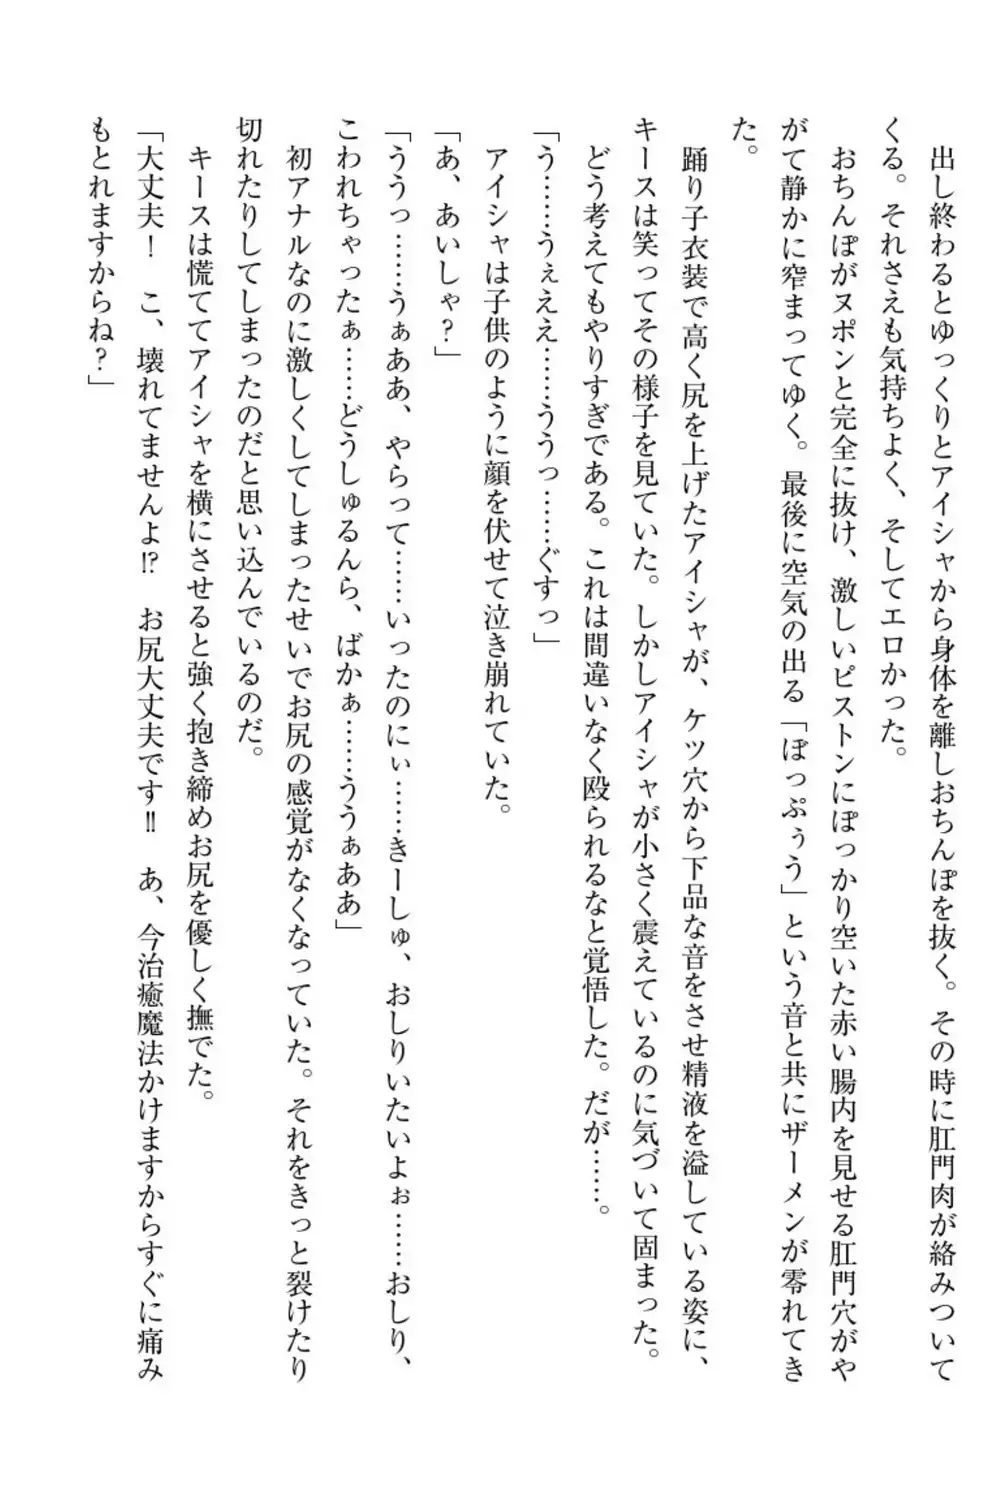 出し終わるとゆっくりとアイシャから身体を離しおちんぽを抜く。その時に肛門肉が絡みついて
くる。それさえも気持ちよく、そしてエロかった。
おちんぽがヌポンと完全に抜け、激しいピストンにぽっかり空いた赤い腸内を見せる肛門穴がや
がて静かに窄まってゆく。最後に空気の出る「ぽっぷぅう」という音と共にザーメンが零れてき
た。
踊り子衣装で高く尻を上げたアイシャが、ケツ穴から下品な音をさせ精液を溢している姿に、
キースは笑ってその様子を見ていた。しかしアイシャが小さく震えているのに気づいて固まった。
どう考えてもやりすぎである。これは間違いなく殴られるなと覚悟した。だが……。
「う……うぇええ……ううっ……ぐすっ」
アイシャは子供のように顔を伏せて泣き崩れていた。
「あ、あいしゃ？」
「ううっ……うぁああ、やらって……いったのにぃ……きーしゅ、おしりいたいよぉ……おしり、
こわれちゃったぁ……どうしゅるんら、ばかぁ……ううぁああ」
初アナルなのに激しくしてしまったせいでお尻の感覚がなくなっていた。それをきっと裂けたり
切れたりしてしまったのだと思い込んでいるのだ。
キースは慌ててアイシャを横にさせると強く抱き締めお尻を優しく撫でた。
「大丈夫！　こ、壊れてませんよ⁉　お尻大丈夫です‼　あ、今治癒魔法かけますからすぐに痛み
もとれますからね？」